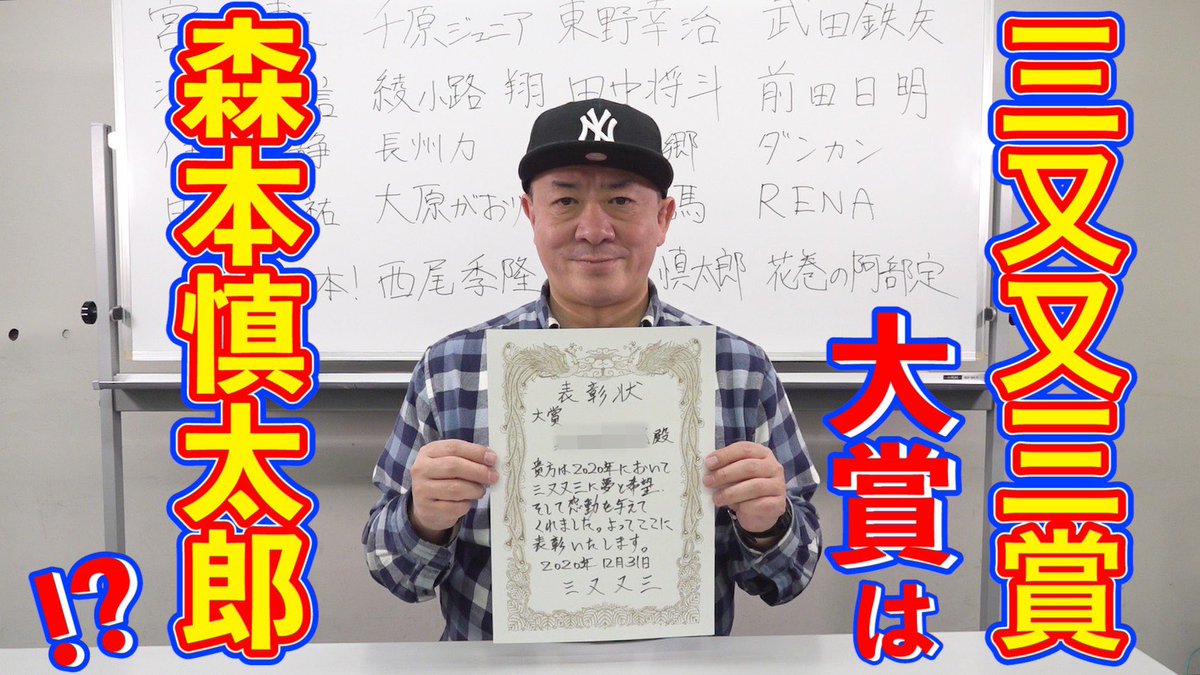 三又又三賞
大賞は
森本慎太郎
!?
千原ジュニア 東野幸治 武田鉄矢
綾小路 翔 田中将斗 前田日明
長州力 郷 ダンカン
祐 大原がおり 馬 RENA
本! 西尾季隆 慎太郎 花巻の阿部定
NY
表彰状
大賞
殿
貴方は2020年において
三又又三に夢と希望
そして感動を与えて
くれました。よってここに
表彰いたします。
2020年12月31日
三又又三